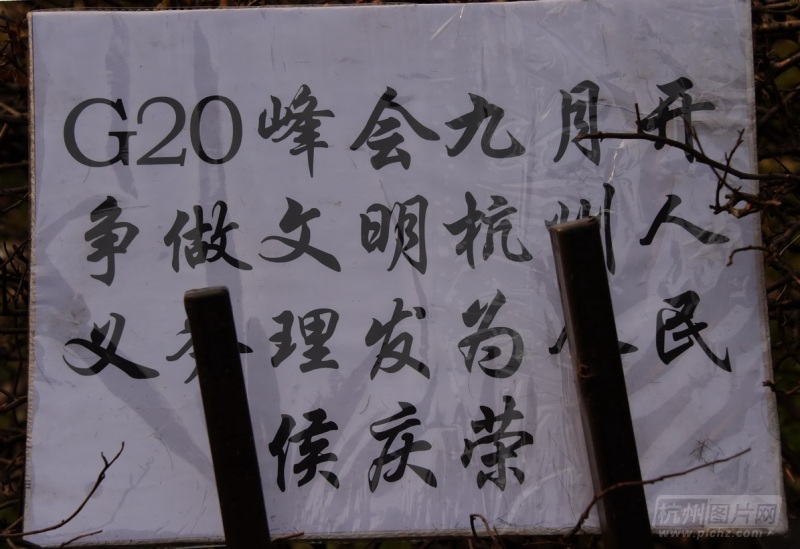 G20峰会九月开
争做文明杭州人
义务理发为人民
侯庆荣
杭州图片网
www.pichz.com